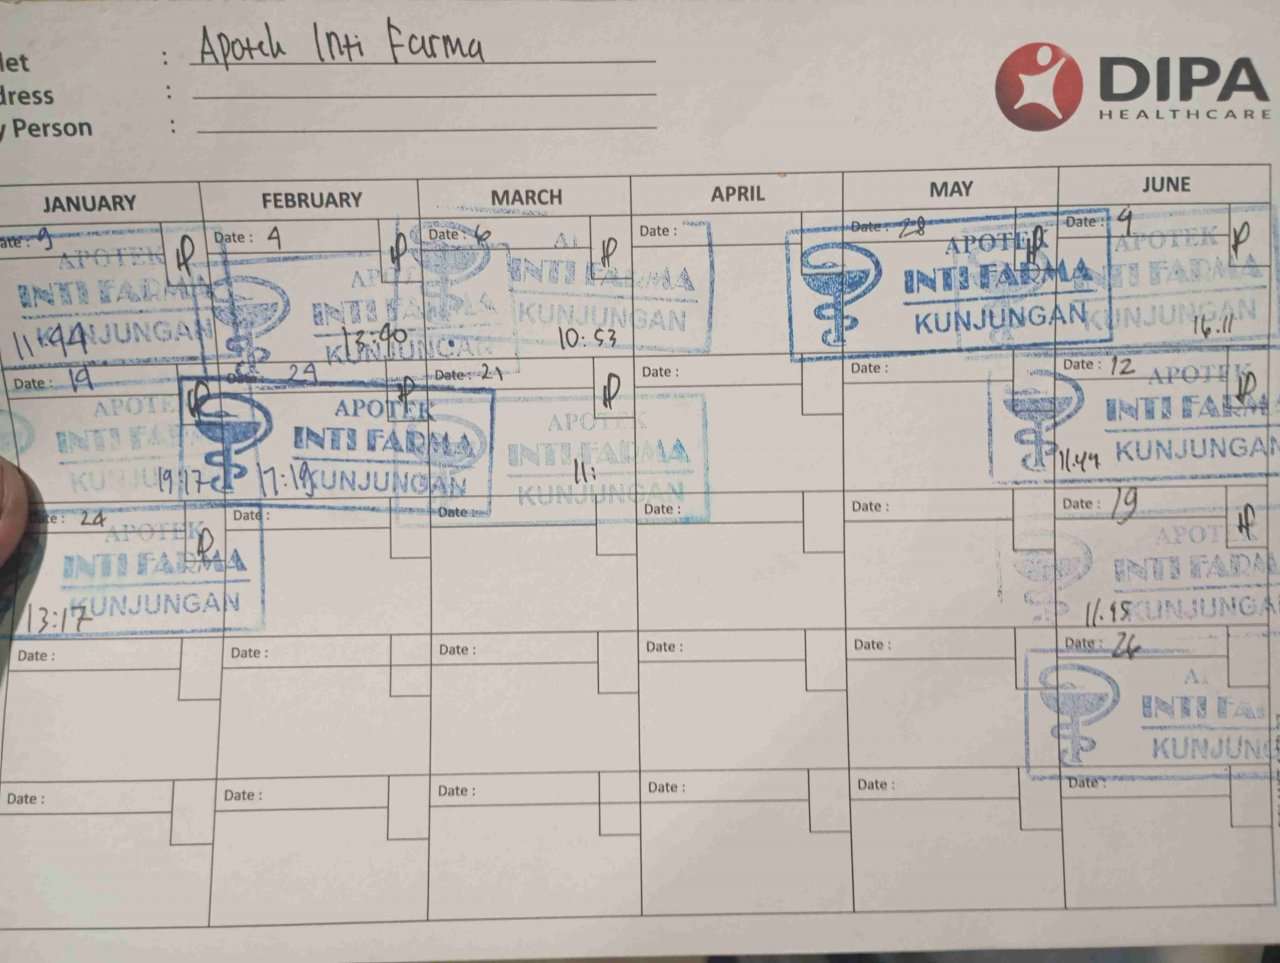 let : Apotek Inti Farma
dress :
y Person :
DIPA
HEALTHCARE
JANUARY FEBRUARY MARCH APRIL MAY JUNE
ate : 9 Date : 4 Date : 6 Date : Date : 28 Date : 9
APOTEK
INTI FARMA
KUNJUNGAN
11:44
INTI FARMA
KUNJUNGAN
13:40
INTI FARMA
KUNJUNGAN
10:53
APOTEK
INTI FARMA
KUNJUNGAN
APOTEK
INTI FARMA
KUNJUNGAN
16.11
Date : 19 Date : 24 Date : 21 Date : Date : Date : 12
APOTEK
INTI FARMA
KUNJUNGAN
19:17
APOTEK
INTI FARMA
KUNJUNGAN
17:19
APOTEK
INTI FARMA
KUNJUNGAN
11:
APOTEK
INTI FARMA
KUNJUNGAN
11.44
Date : 24 Date : Date : Date : Date : Date : 19
APOTEK
INTI FARMA
KUNJUNGAN
13:17
APOT
INTI FARMA
KUNJUNGA
11.45
Date : Date : Date : Date : Date : Date : 26
INTI FA
KUNJUNG
Date : Date : Date : Date : Date : Date :